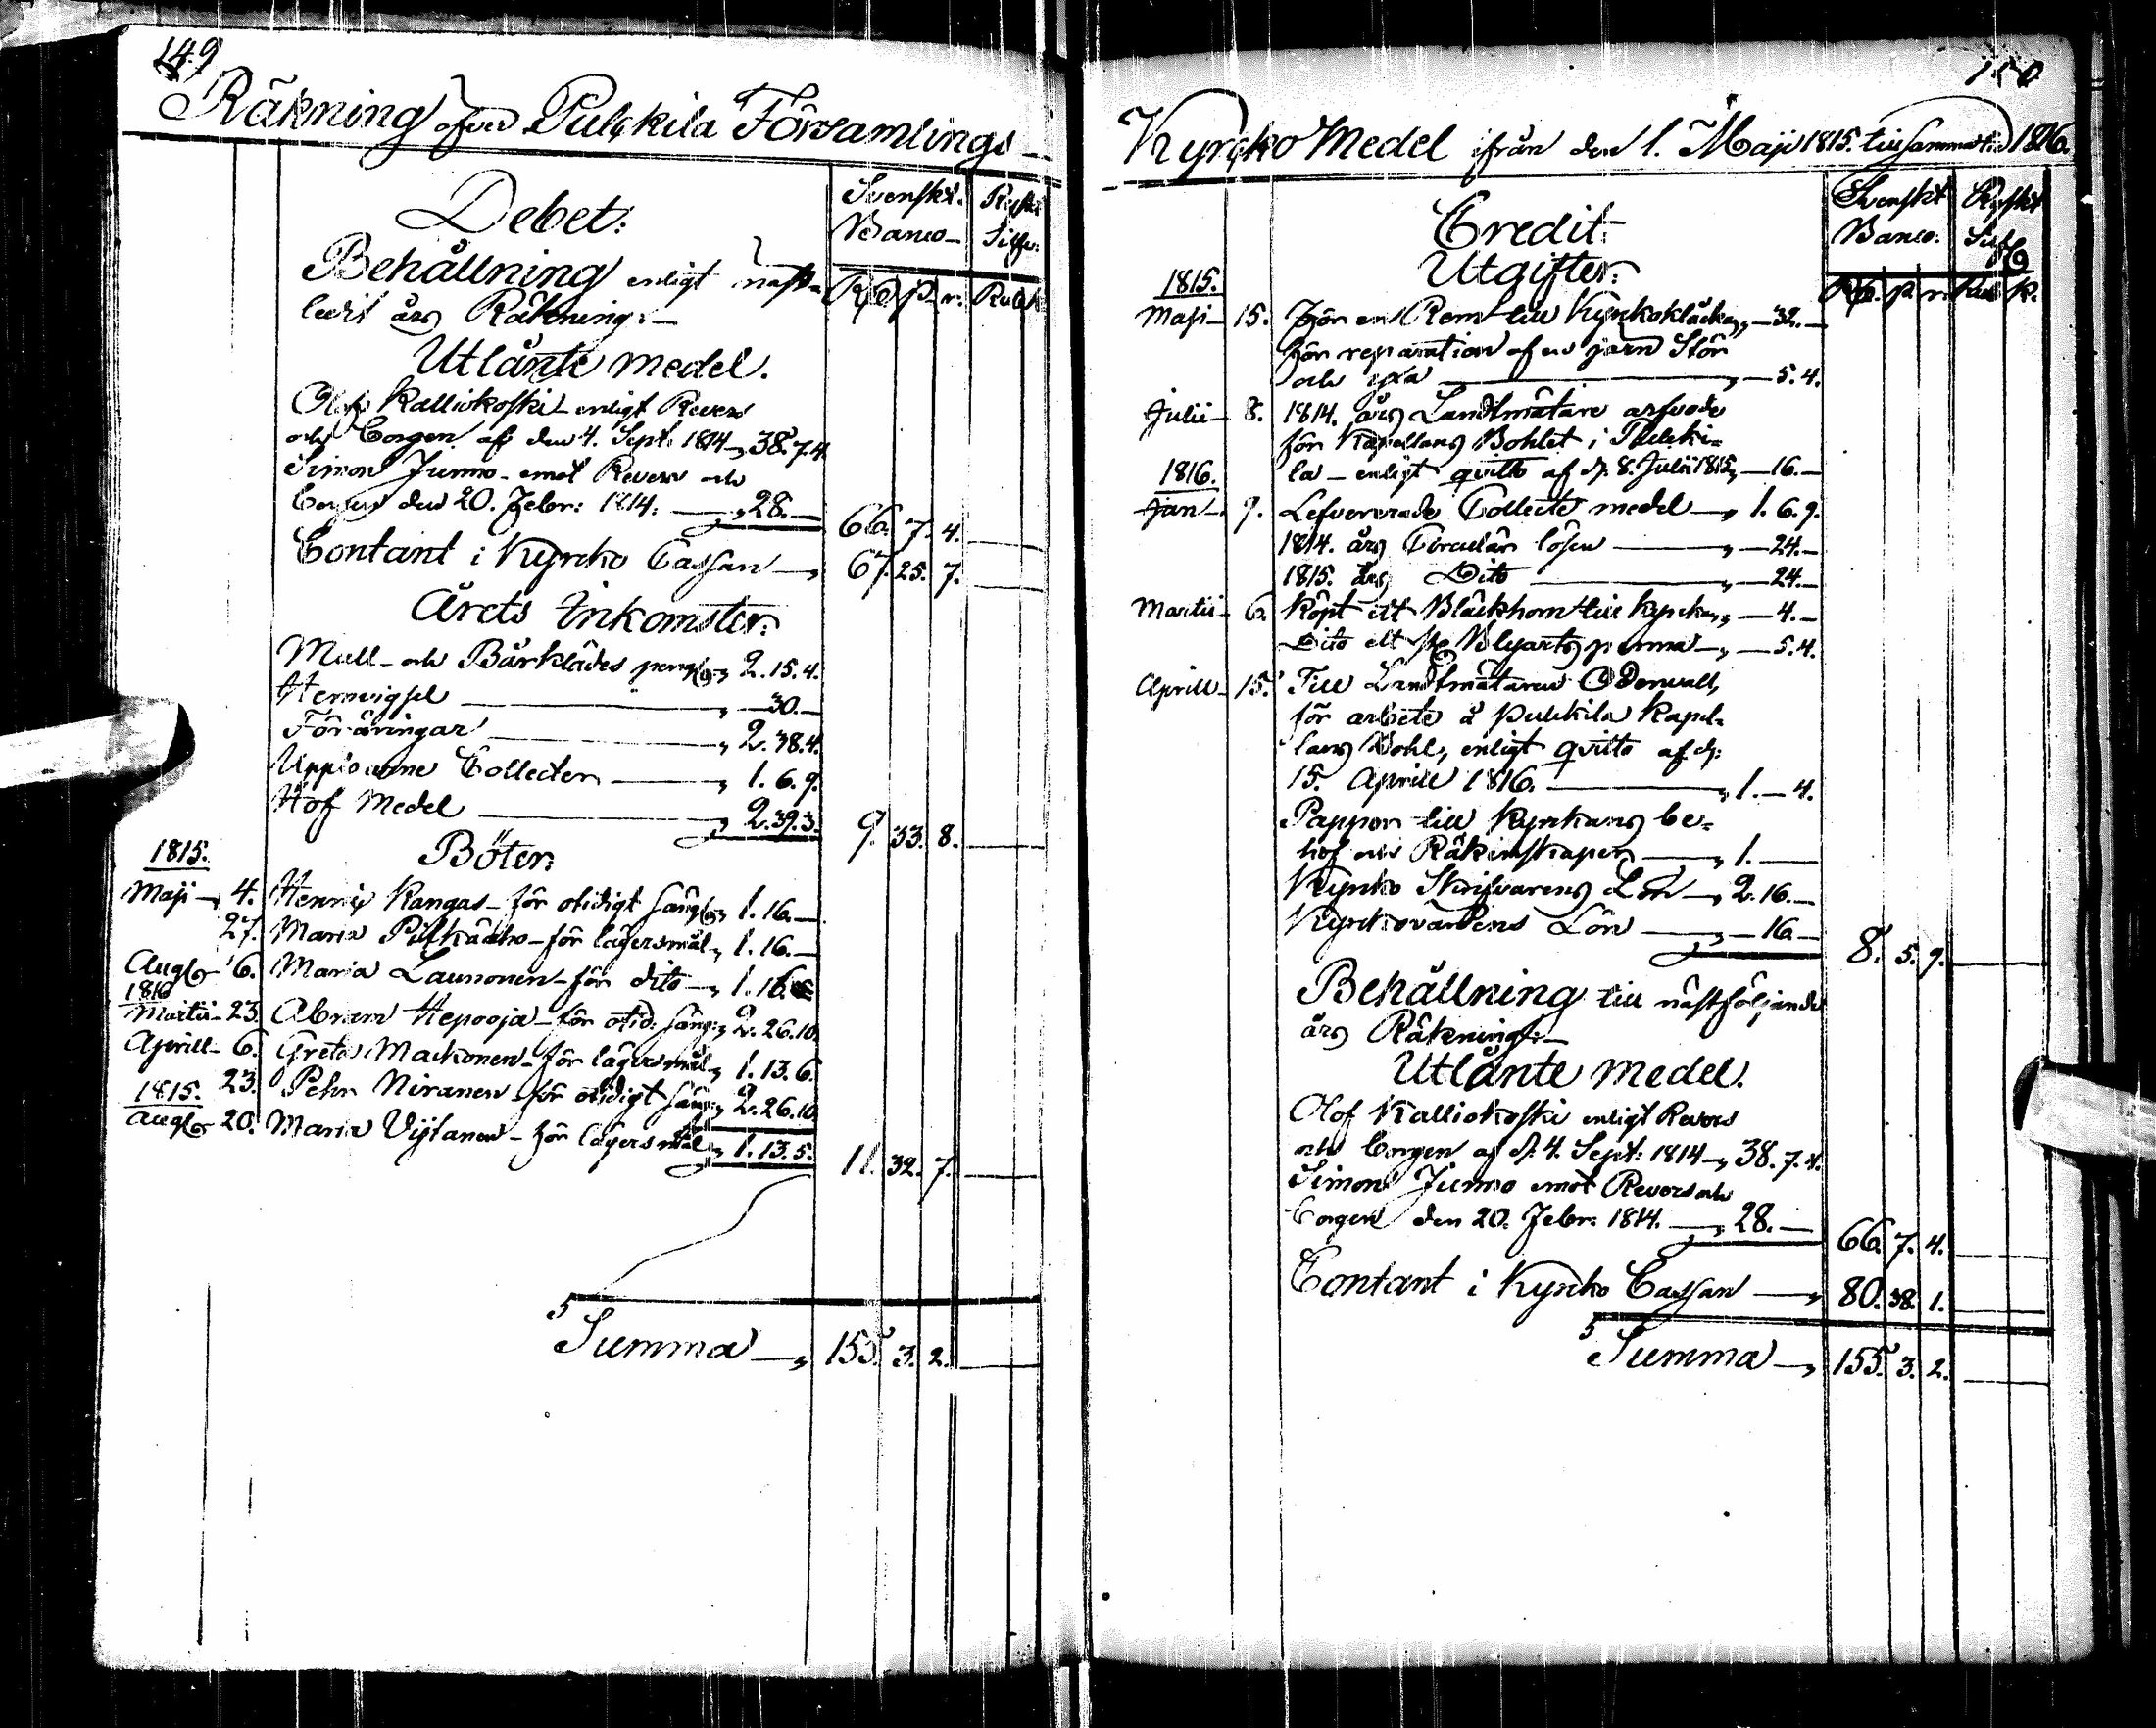 149
Räkning öfver Pulckila Församlings
Debet:
Svenskt. Ryskt
Banco. Silfv:
Behållning enligt näst-
ledit års Räkning.
Rd. p. r. Rub. k.
Utlånte medel.
Olof Kalliokoski enligt Revers
och Borgen af den 4. Sept: 1814 „ 38. 7. 4.
Simon Junno emot Revers och
Borgen den 20. Febr: 1814. „ 28. — 66. 7. 4.
Contant i Kyrcko Cassan „ 67. 25. 7.
Årets Inkomster.
Mull- och Bårklädes peng:r „ 2. 15. 4.
Hemvigsel „ — 30. —
Föräringar „ 2. 38. 4.
Uppburne Collecter „ 1. 6. 9.
Hof Medel „ 2. 39. 3. 9. 33. 8.
1815. Böter.
Maji 4. Henric Kangas för otidigt säng: „ 1. 16. —
27. Maria för lägersmål „ 1. 16. —
Aug: 6. Maria Launonen för dito „ 1. 16.
1816
Martii 23. Abram Hepooja för otid: säng: „ 2. 26. 10.
Aprill 6. Greta Markonen för lägersmål „ 1. 13. 6.
23. Pehr Niranen för otidigt säng: „ 2. 26. 10.
1815.
Aug: 20. Maria för lägersmål „ 1. 13. 5. 11. 32. 7.
Summa „ 155. 3. 2.
150
Kyrcko Medel ifrån den 1. Maji 1815. till samma t:d 1816.
Credit:
Svenskt Ryskt
Banco. Silf
Utgifter:
Rd. p. r. Rub. k.
1815.
Maji 15. För en Rem till Kyrkoklåckan „ — 32. —
för reparation af en jern Stör
och yxa „ — 5. 4.
Julii 8. 1814. års Landtmätare arfvode
för Kapellans Bohlet i Pulcki-
la enligt qvitto af d. 8. Julii 1815 „ — 16. —
1816.
Jan 9. Lefvererade Collecte medel „ 1. 6. 9.
1814. års Circulär lösen „ — 24. —
1815. års Dito „ — 24. —
Martii 6. Köpt ett Bläckhorn till kyrckan „ — 4. —
Dito ett st Blyartspenna „ — 5. 4.
Aprill 15. Till Landtmätaren Oderwall,
för arbete å Pulckila Kapel-
lans Bohl, enligt qvitto af d:
15. Aprill 1816. „ 1. — 4.
Papper till Kyrckans be-
hof och Räkenskaper „ 1. —
Kyrcko Skrifvarens Lön „ 2. 16. —
Kyrckovärdens Lön „ — 16. — 8. 5. 9.
Behållning till nästföljande
års Räkning:
Utlånte medel.
Olof Kalliokoski enligt Revers
och Borgen af d. 4. Sept: 1814 „ 38. 7. 4.
Simon Junno emot Revers och
Borgen den 20. Febr: 1814. „ 28. — 66. 7. 4.
Contant i Kyrcko Cassan „ 80. 38. 1.
Summa „ 155. 3. 2.